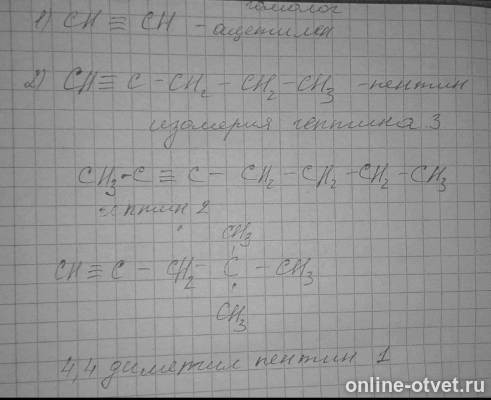 гомолог
1) CH ≡ CH - ацетилен
2) CH ≡ C - CH2 - CH2 - CH3 - пентин
изомерия гептина 3
CH3 - C ≡ C - CH2 - CH2 - CH2 - CH3
гептин 2
CH3
CH ≡ C - CH2 - C - CH3
CH3
4,4 диметил пентин 1
online-otvet.ru